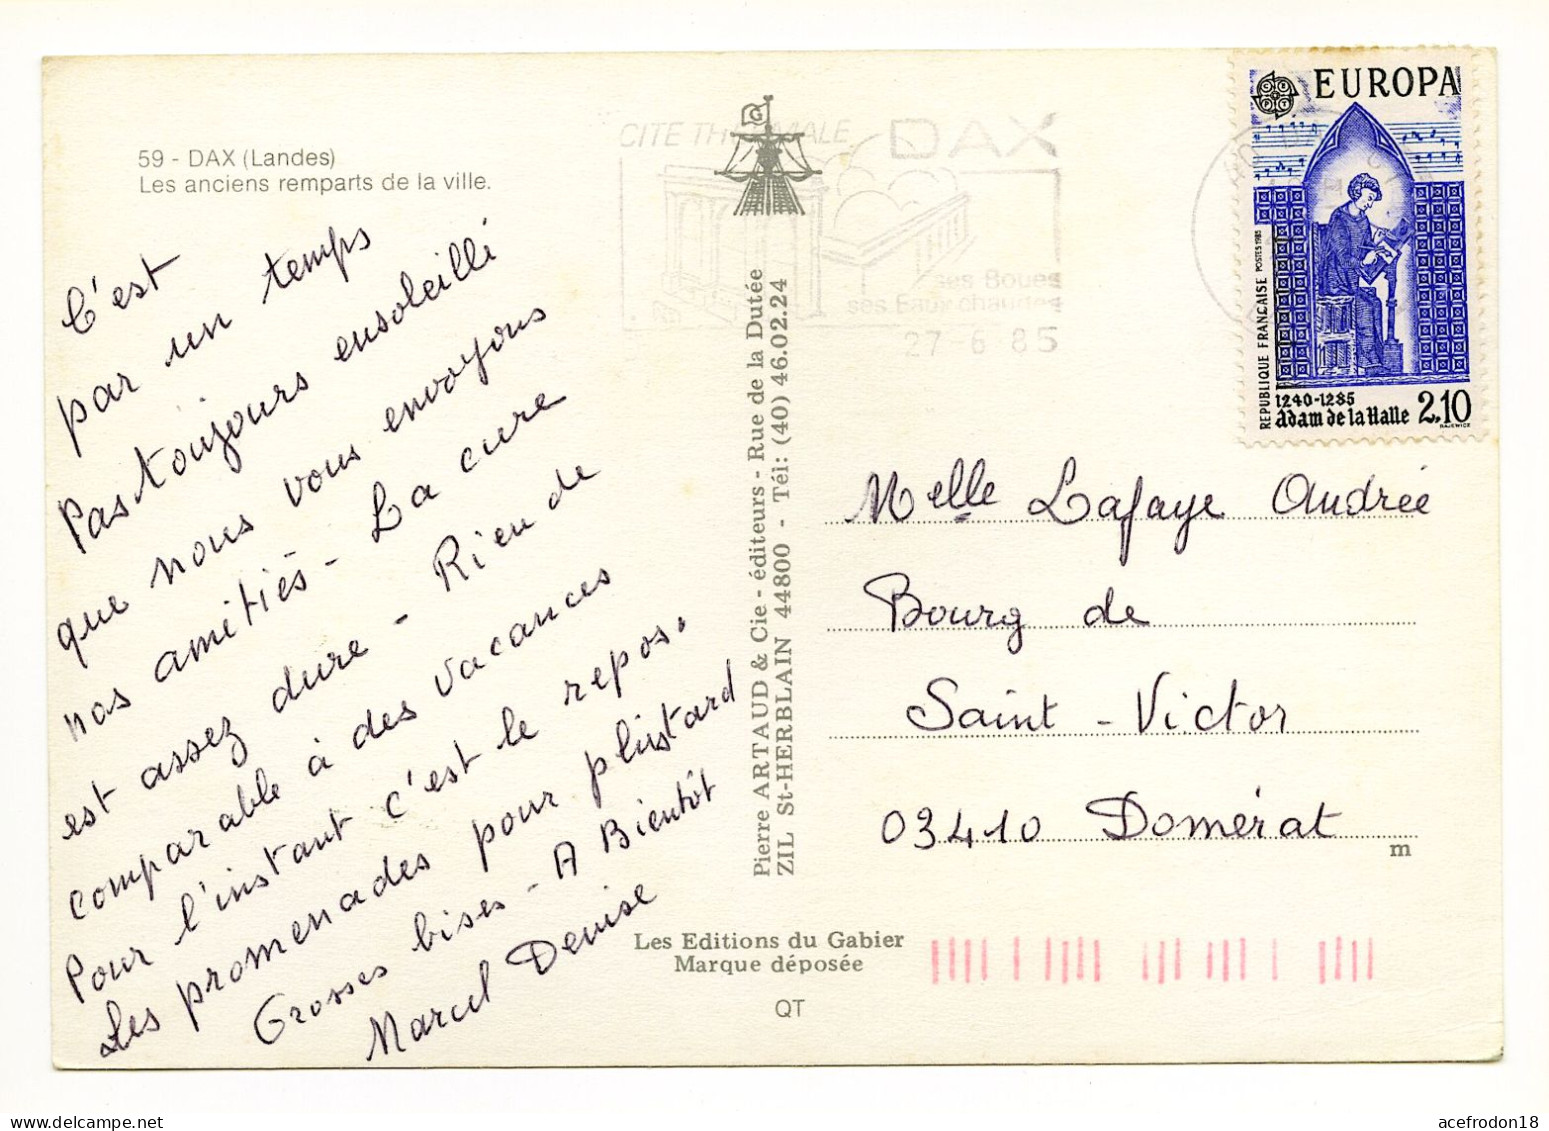 59 - DAX (Landes)
Les anciens remparts de la ville.
C'est
par un temps
Pas toujours ensoleillé
que nous vous envoyons
nos amitiés - La cure
est assez dure - Rien de
comparable à des vacances
Pour l'instant c'est le repos.
Les promenades pour plustard
Grosses bises - A Bientôt
Marcel Denise
Pierre ARTAUD & Cie - éditeurs - Rue de la Dutée
ZIL St-HERBLAIN 44800 - Tél: (40) 46.02.24
G
CITE THERMALE DAX
ses Boues
ses Eaux chaudes
27-6 85
EUROPA
CEPT
REPUBLIQUE FRANCAISE POSTES 1985
1240-1285
Adam de la Halle 2,10
HAJEWICZ
Melle Lafaye Andrée
Bourg de
Saint-Victor
03410 Domérat
m
Les Editions du Gabier
Marque déposée
QT
acefrodon18